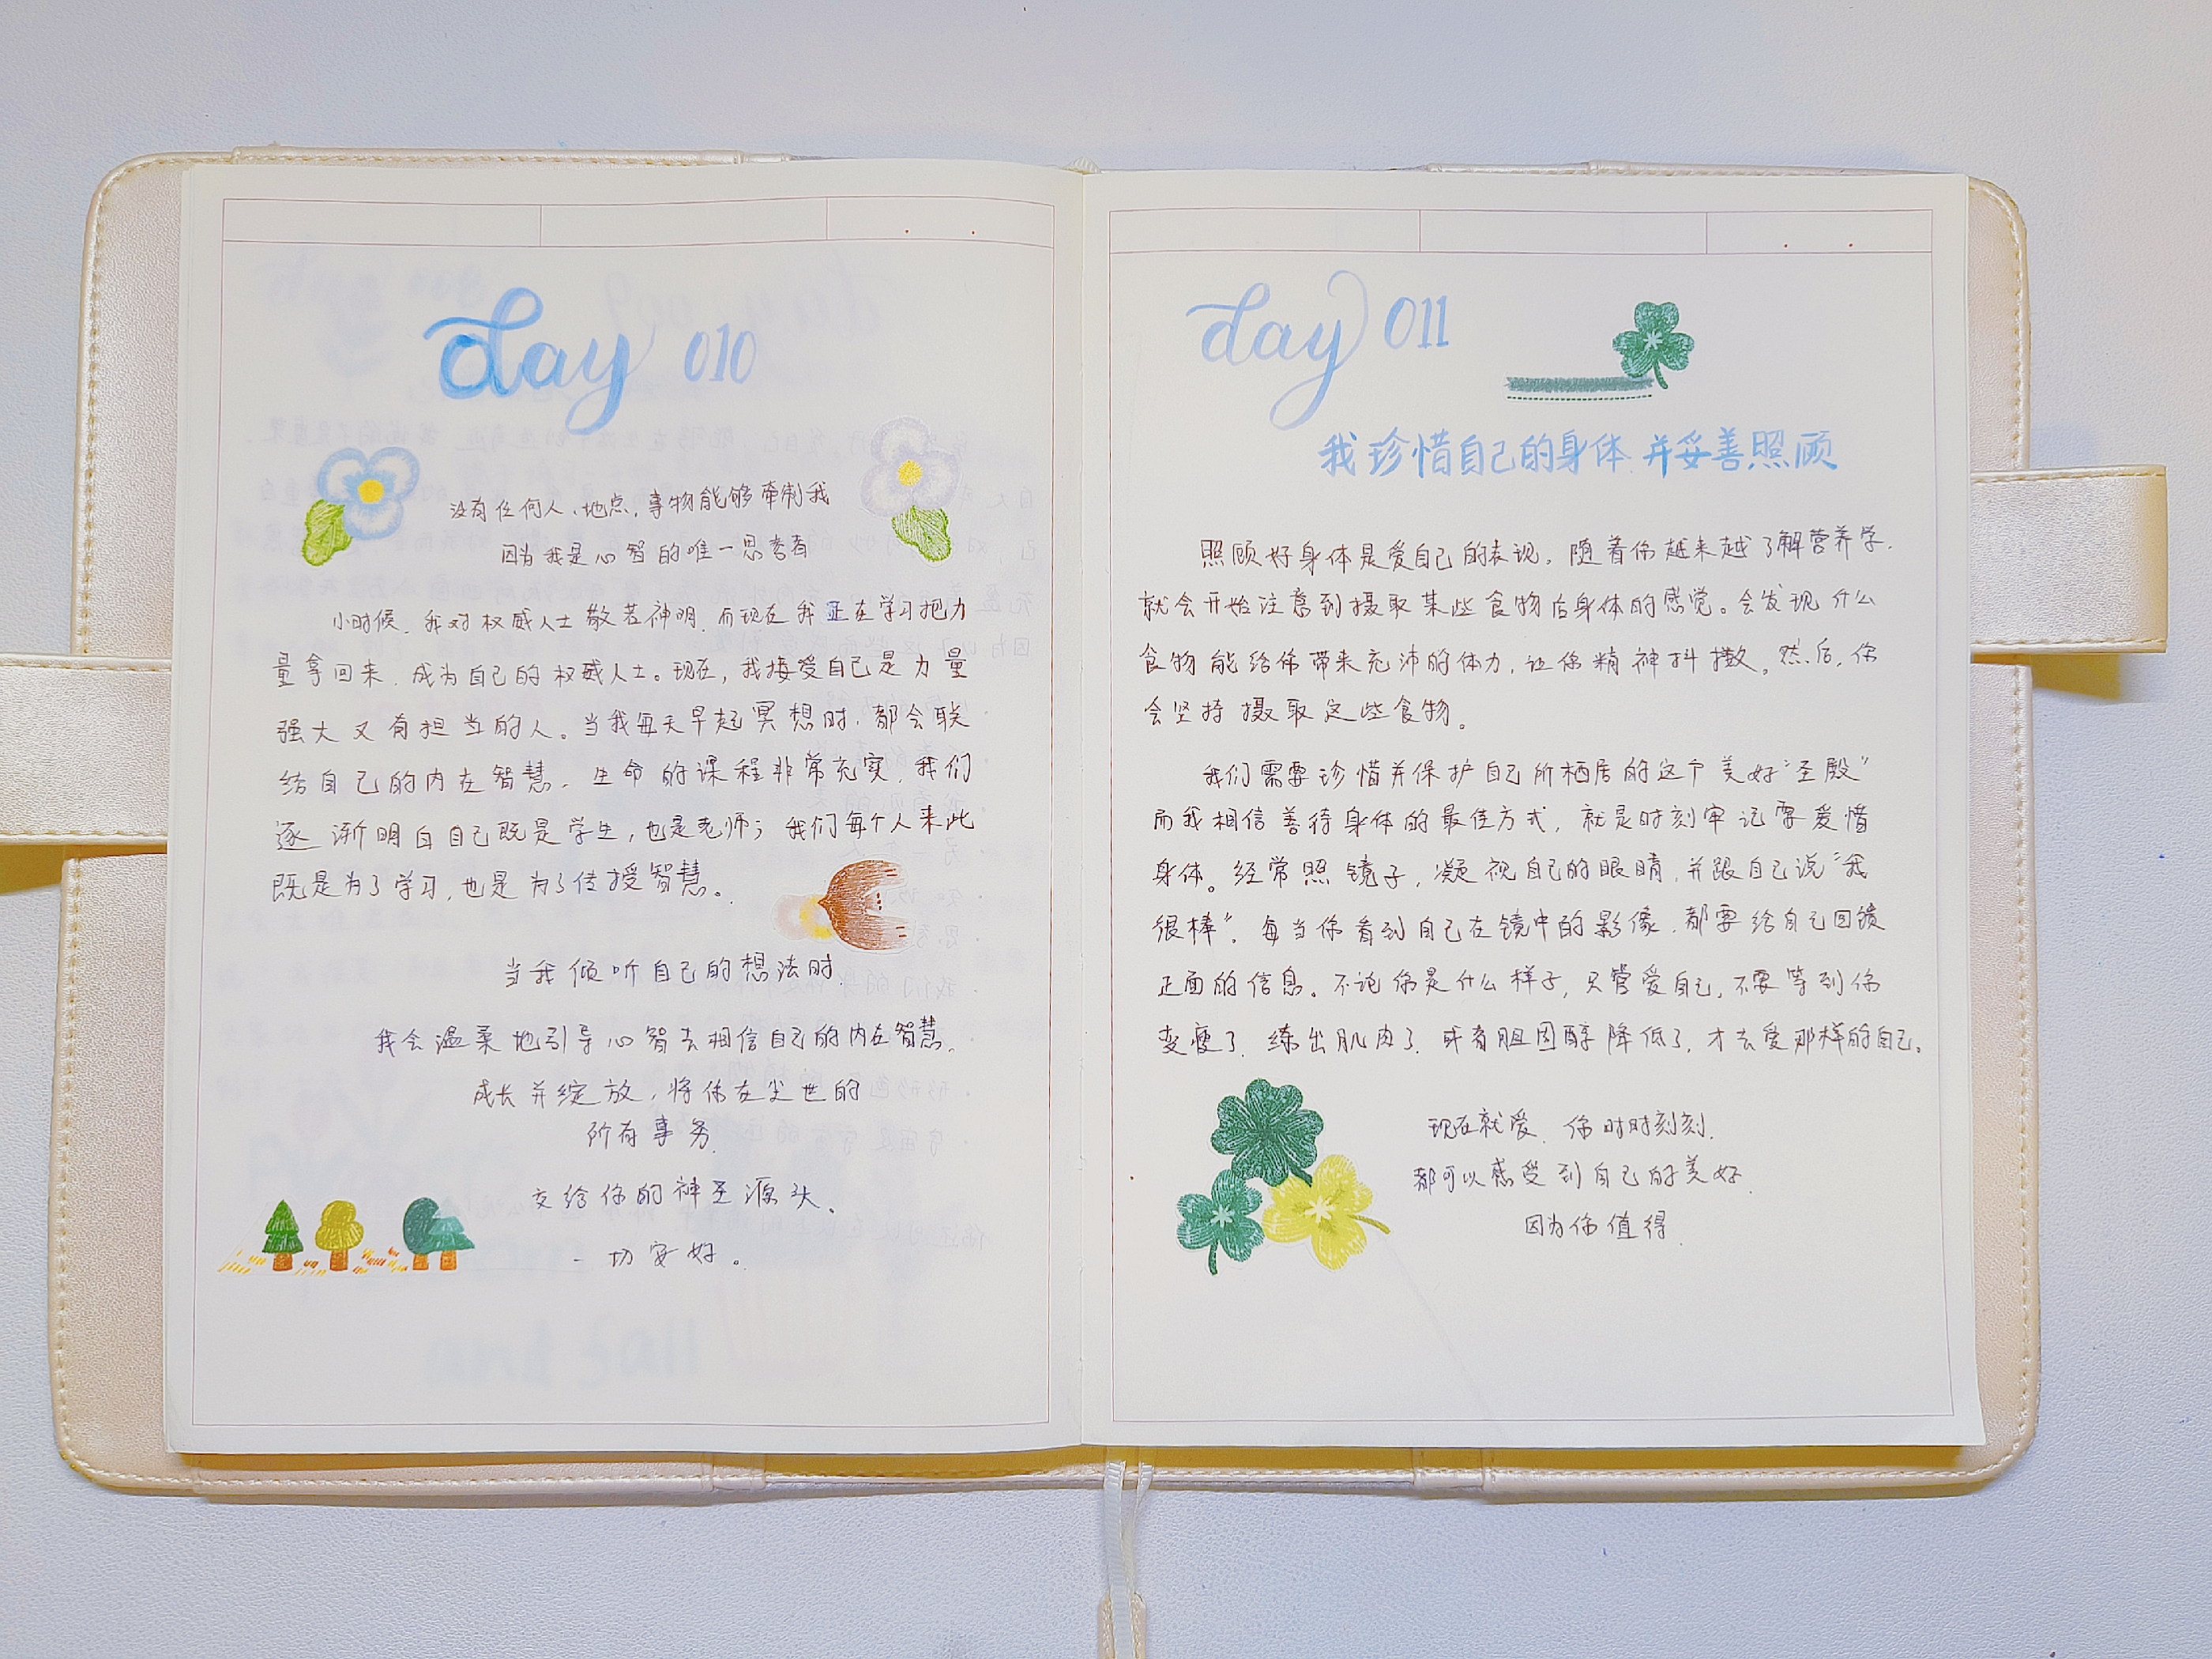 day 010
没有任何人、地点，事物能够牵制我
因为我是心智的唯一思考者
小时候，我对权威人士敬若神明，而现在我正在学习把力
量拿回来，成为自己的权威人士。现在，我接受自己是力量
强大又有担当的人。当我每天早起冥想时，都会联
结自己的内在智慧。生命的课程非常充实，我们
逐渐明白自己既是学生，也是老师；我们每个人来此
既是为了学习，也是为了传授智慧。
当我倾听自己的想法时，
我会温柔地引导心智去相信自己的内在智慧。
成长并绽放，将你在尘世的
所有事务
交给你的神圣源头。
一切安好。
day 011
我珍惜自己的身体 并妥善照顾
照顾好身体是爱自己的表现。随着你越来越了解营养学，
就会开始注意到摄取某些食物后身体的感觉。会发现什么
食物能给你带来充沛的体力，让你精神抖擞。然后，你
会坚持摄取这些食物。
我们需要珍惜并保护自己所栖居的这个美好“圣殿”
而我相信善待身体的最佳方式，就是时刻牢记要爱惜
身体。经常照镜子，凝视自己的眼睛，并跟自己说“我
很棒”。每当你看到自己在镜中的影像，都要给自己回馈
正面的信息。不论你是什么样子，只管爱自己，不要等到你
变瘦了，练出肌肉了，或者胆固醇降低了，才去爱那样的自己。
现在就爱，你时时刻刻，
都可以感受到自己的美好，
因为你值得